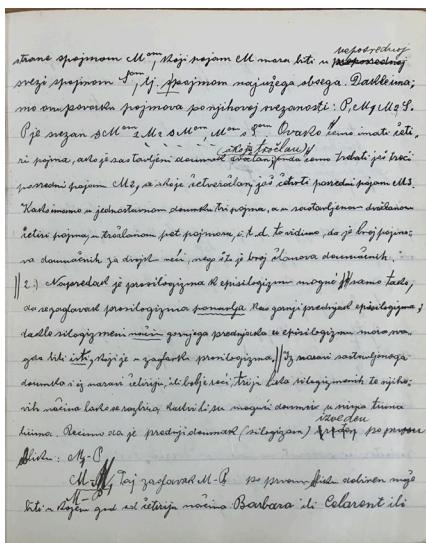 neposrednoj
strane s pojmom M om, koji pojam M mora biti u neposrednoj
svezi s pojmom S om, tj. s pojmom najužega obsega. Dakle ima-
mo onu povorku pojmova po njihovoj vezanosti: P, M1 M2 S.
P je vezan s M om s M2 s M om, M om s S om. Ovako ćemo imati četi-
(ikoji tročlan)
ri pojma, ako je sastavljeni doumak dvočlan, ćemo trebati još treći
posredni pojam M2, za koje četveročlan, još četvrti posredni pojam M3.
Kako imamo u jednostavnom doumku tri pojma, a u sastavljenom dvočlanom
četiri pojma, u tročlanom pet pojmova, i. t. d. to vidimo, da je broj pojmo-
va doumačnih za dvoje veći, nego što je broj članova doumačnih.
2.) Napredak je prosilogizma k episilogizmu moguć samo tako,
da se zaglavak prosilogizma ponavlja kao gornji prednjak episilogizma;
dakle silogizmeni način gornjega prednjaka u episilogizmu mora va-
zda biti isti, koji je u zaglavku prosilogizma, Iz naravi sastavljenoga
doumka i iz naravi četiriju, ili bolje reći, triju lika silogizmenih te njiho-
vih načina lako se razbira, kakvi li su mogući doumci u njima
izveden
Recimo da je prednji doumak (silogizam) po prvom
liku: M1-P
M-M1, Taj zaglavak M-P po prvom liku dobiven može
M-P
biti u kojem god od četiriju načina Barbara ili Celarent ili